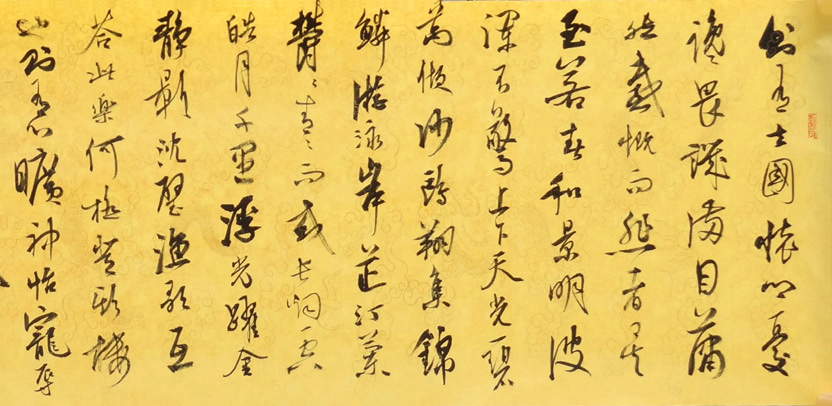 則有去國懷鄉憂
讒畏譏滿目蕭
然感慨而悲者矣
至若春和景明波
瀾不驚上下天光一碧
萬頃沙鷗翔集錦
鱗游泳岸芷汀蘭
鬱〻青〻而或長烟一空
皓月千里浮光躍金
靜影沈璧漁歌互
答此樂何極登斯樓
也則有心曠神怡寵辱